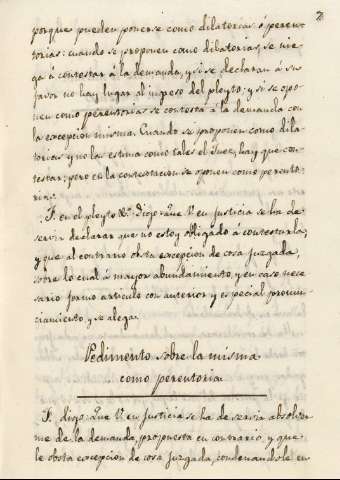 7
porque pueden ponerse como dilatorias ó peren-
torias: cuando se proponen como dilatorias, se nie-
ga á contestar á la demanda, y si se declaran á su
favor no hay lugar al ingreso del pleyto; y si se opo-
nen como perentorias se contesta á la demanda con
la escepcion misma. Cuando se proponen como dila-
torias y no las estima como tales el Juez, hay que con-
testar; pero en la contestacion se oponen como perento-
rias.
F. en el pleyto &ª. Digo: que V. en Justicia se ha de
servir declarar que no estoy obligado á contestarla,
y que al contrario obsta escepcion de cosa juzgada,
sobre lo cual á mayor abundamiento, y en caso nece-
sario formo articulo con anterior y especial pronun-
ciamiento, y se alega
Pedimento sobre la misma
como perentoria
F. digo: que V. en Justicia se ha de servir absolver-
me de la demanda, propuesta en contrario, y que
le obsta escepcion de cosa juzgada, condenandole en